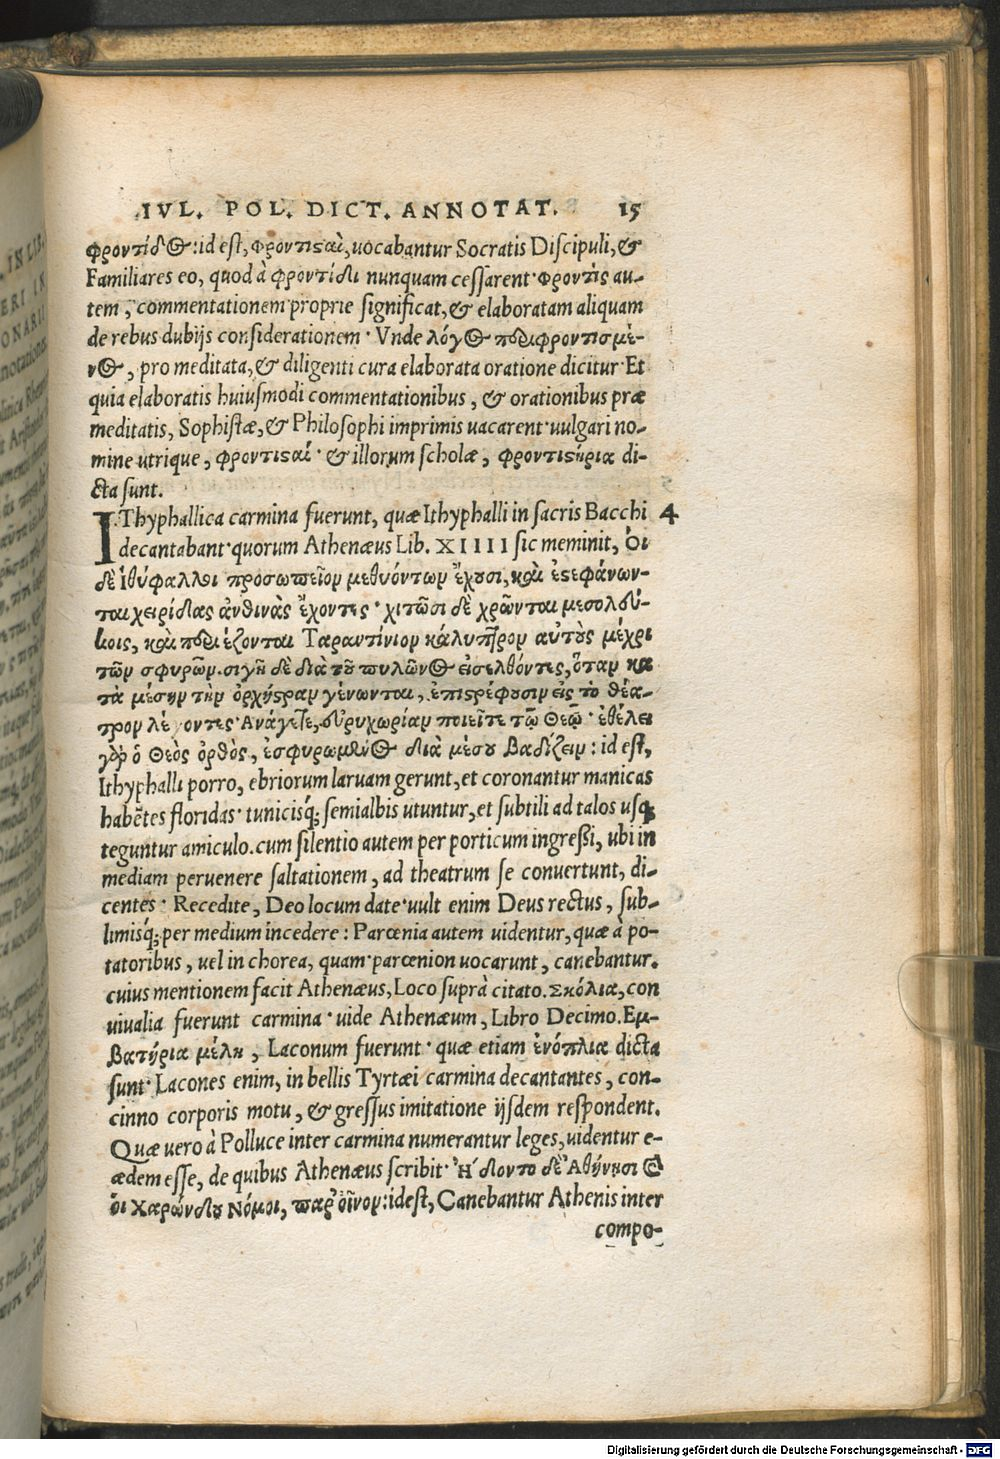 IVL. POL. DICT. ANNOTAT. 15
φροντίδος: id est, φροντιϛαὶ, uocabantur Socratis Discipuli, &
Familiares eo, quod à φροντίδι nunquam cessarent· φροντὶς au-
tem, commentationem proprie significat, & elaboratam aliquam
de rebus dubijs considerationem· Vnde λόγος πεφροντισμέ-
νος, pro meditata, & diligenti cura elaborata oratione dicitur· Et
quia elaboratis huiusmodi commentationibus, & orationibus præ
meditatis, Sophistæ, & Philosophi imprimis uacarent· uulgari no-
mine utrique, φροντιϛαί· & illorum scholæ, φροντιϛήρια di-
cta sunt.
IThyphallica carmina fuerunt, quæ Ithyphalli in sacris Bacchi 4
decantabant· quorum Athenæus Lib. XIIII sic meminit, Οἱ
δὲ ἰθύφαλλοι προσωπεῖον μεθυόντων ἔχουσι, καὶ ἐϛεφάνων-
ται χειρίδας ἀνθινὰς ἔχοντες· χιτῶσι δὲ χρῶνται μεσολεύ-
κοις, καὶ περιέζονται Ταραντίνιον κάλυπτρον αὐτοὺς μέχρι
τῶν σφυρῶν. σιγῇ δὲ διὰ τοῦ πυλῶνος εἰσελθόντες, ὅταν κα
τὰ μέσην τὴν ὀρχήϛραν γένωνται, ἐπιϛρέφουσιν εἰς τὸ θέα-
τρον λέγοντες· Ἀνάγετε, εὐρυχωρίαν ποιεῖτε τῷ Θεῷ· ἐθέλει
γὰρ ὁ Θεὸς ὀρθὸς, ἐσφυρωμένος διὰ μέσου βαδίζειν: id est,
Ithyphalli porro, ebriorum laruam gerunt, et coronantur manicas
habētes floridas· tunicisq; semialbis utuntur, et subtili ad talos usq;
teguntur amiculo. cum silentio autem per porticum ingressi, ubi in
mediam peruenere saltationem, ad theatrum se conuertunt, di-
centes· Recedite, Deo locum date· uult enim Deus rectus, sub-
limisq; per medium incedere: Parœnia autem uidentur, quæ à po-
tatoribus, uel in chorea, quam· parœnion uocarunt, canebantur.
cuius mentionem facit Athenæus, Loco suprà citato. Σκόλια, con
uiualia fuerunt carmina· uide Athenæum, Libro Decimo. Εμ-
βατήρια μέλη, Laconum fuerunt· quæ etiam ἐνόπλια dicta
sunt· Lacones enim, in bellis Tyrtæi carmina decantantes, con-
cinno corporis motu, & gressus imitatione ijsdem respondent.
Quæ uero à Polluce inter carmina numerantur leges, uidentur e-
ædem esse, de quibus Athenæus scribit· Ἤδοντο δὲ Ἀθήνησι καὶ
οἱ Χαρώνδου Νόμοι, παρ' οἶνον: id est, Canebantur Athenis inter
compo-
Digitalisierung gefördert durch die Deutsche Forschungsgemeinschaft - DFG